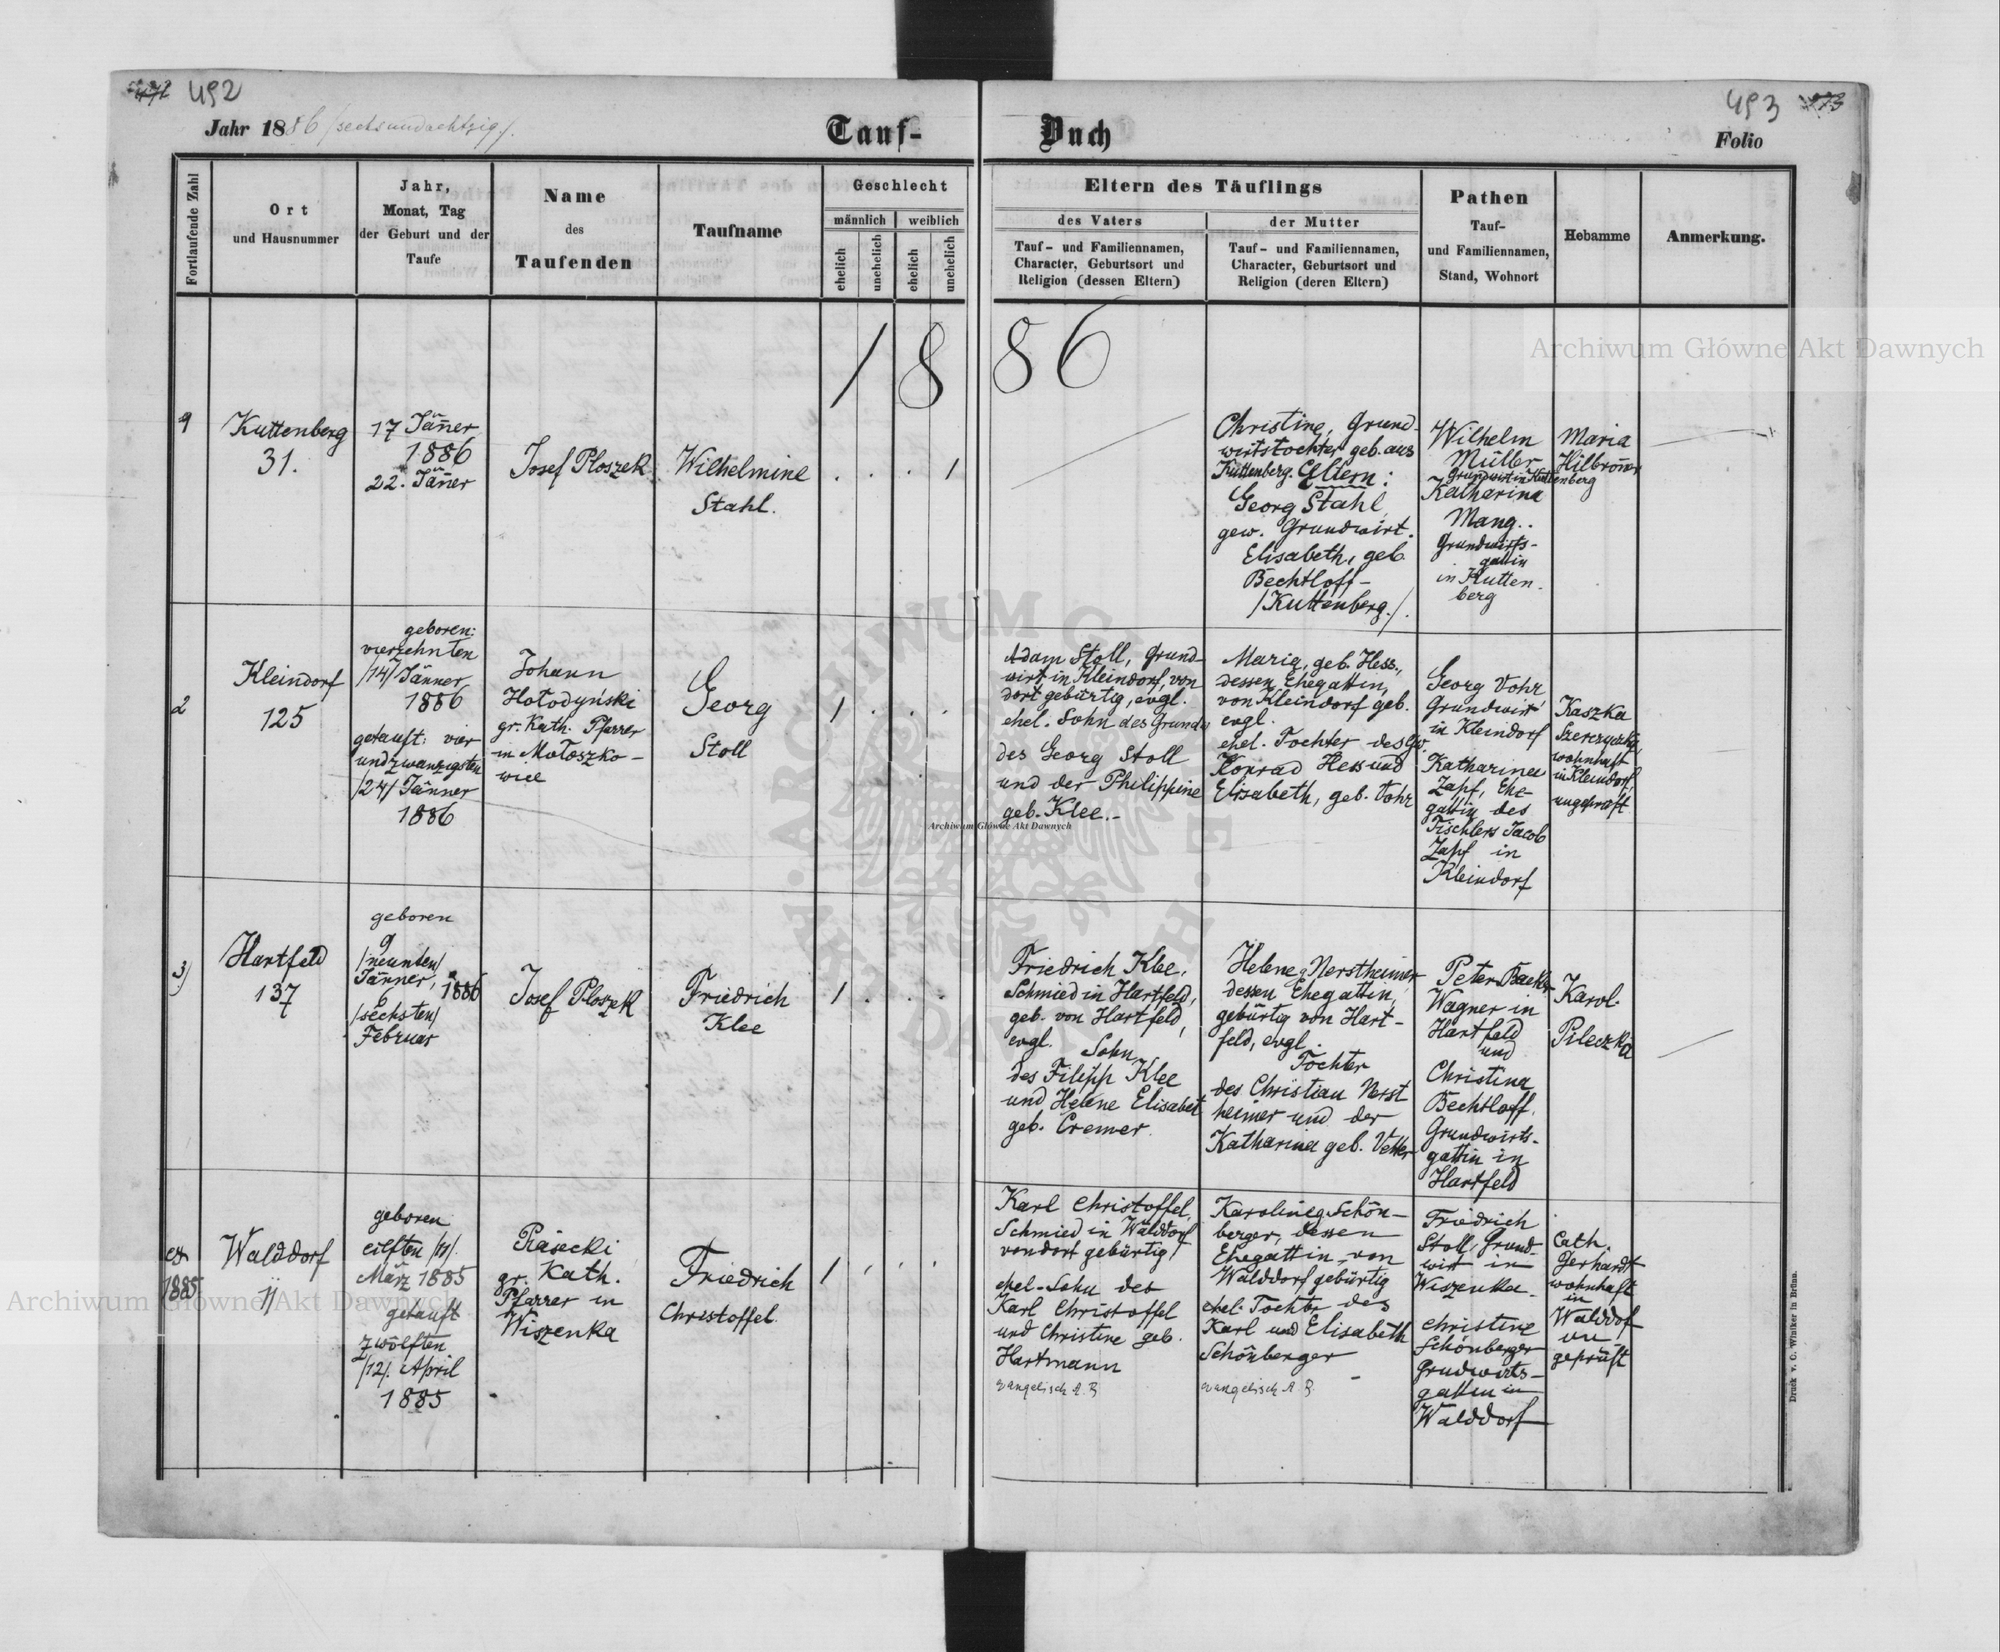 492
493
Jahr 1886 /sechsundachtzig/.
Tauf-
Buch
Folio
Fortlaufende Zahl
Ort
und Hausnummer
Jahr,
Monat, Tag
der Geburt und der
Taufe
Name
des
Taufenden
Taufname
Geschlecht
männlich
weiblich
ehelich
unehelich
ehelich
unehelich
Eltern des Täuflings
des Vaters
Tauf- und Familiennamen,
Character, Geburtsort und
Religion (dessen Eltern)
der Mutter
Tauf- und Familiennamen,
Character, Geburtsort und
Religion (deren Eltern)
Pathen
Tauf-
und Familiennamen,
Stand, Wohnort
Hebamme
Anmerkung.
1886
Archiwum Główne Akt Dawnych
1
Kuttenberg
31.
17 Jänner
1886
22. Jänner
Josef Ploszek
Wilhelmine
Stahl.
1
Christine, Grund-
wirtstochter geb. aus
Kuttenberg. Eltern:
Georg Stahl,
gew. Grundwirt.
Elisabeth, geb.
Bechtloff-
/Kuttenberg./.
Wilhelm
Müller
Grundwirt in Kuttenberg
Katharina
Mang..
Grundwirts-
gattin
in Kutten-
berg
Maria
Hilbronner
2
Kleindorf
125
geboren:
vierzehnten
/14/ Jänner
1886
getauft: vier
undzwanzigsten
/24/ Jänner
1886
Johann
Hołodyński
gr. Kath. Pfarrer
in Mołoszko-
wice
Georg
Stoll
1
Adam Stoll, Grund-
wirt in Kleindorf, von
dort gebürtig, evgl.
ehel. Sohn des Grundw
des Georg Stoll
und der Philippine
geb. Klee.-
Maria, geb. Hess,
dessen Ehegattin,
von Kleindorf geb.
evgl.
ehel. Tochter des Gw.
Konrad Hess und
Elisabeth, geb. Vohr
Georg Vohr
Grundwirt
in Kleindorf
Katharina
Zapf, Ehe-
gattin des
Tischlers Jacob
Zapf in
Kleindorf
Kaszka
wohnhaft
in Kleindorf,
ungeprüft
3)
Hartfeld
137
geboren
9
/neunten/
Jänner, 1886
6
/sechsten/
Februar
Josef Ploszek
Friedrich
Klee
1
Friedrich Klee,
Schmied in Hartfeld,
geb. von Hartfeld,
evgl. Sohn
des Filipp Klee
und Helene Elisabet
geb. Cremer.
Helene g. Nerstheimer
dessen Ehegattin,
gebürtig von Hart-
feld, evgl.
Tochter
des Christian Nerst
heimer und der
Katharina geb. Vetter
Peter Backer
Wagner in
Hartfeld
und
Christina
Bechtloff,
Grundwirts-
gattin in
Hartfeld
Karol.
Pileczka
ex
1885
Walddorf
11
geboren
eilften /11/.
März 1885
getauft
zwölften
/12/. April
1885
Piasecki
gr. Kath.
Pfarrer in
Wiszenka
Friedrich
Christoffel
1
Karl Christoffel,
Schmied in Walddorf
von dort gebürtig,
ehel. Sohn des
Karl Christoffel
und Christine geb.
Hartmann
evangelisch A. B.
Karoline g. Schön-
berger, dessen
Ehegattin, von
Walddorf gebürtig
ehel. Tochter des
Karl und Elisabeth
Schönberger
evangelisch A. B.
Friedrich
Stoll, Grund-
wirt in
Wiszenka.
Christine
Schönberger
Grudwirts-
gattin in
Walddorf
Cath.
Gerhardt
wohnhaft
in
Walddof
un
geprüft
Archiwum Główne Akt Dawnych
Archiwum Główne Akt Dawnych
ARCHIWUM GŁÓWNE AKT DAWNYCH
Druck v. C. Winiker in Brünn.